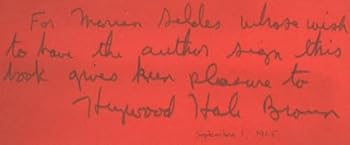 For Marian Seldes whose wish
to have the author sign this
book gives keen pleasure to
Heywood Hale Broun
September 1, 1965